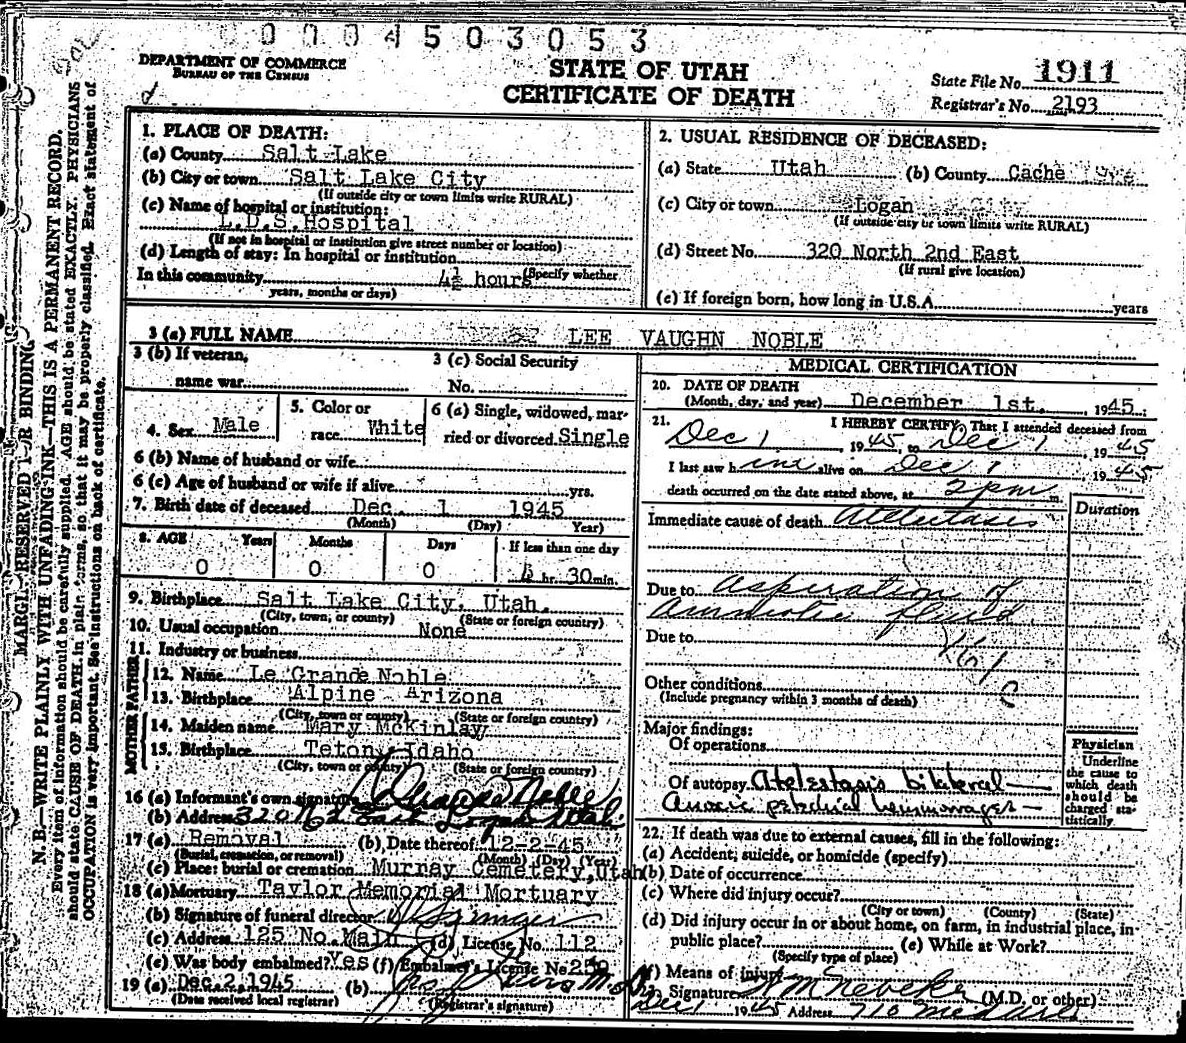 0 0 0 0 4 5 0 3 0 5 3
DEPARTMENT OF COMMERCE
BUREAU OF THE CENSUS
STATE OF UTAH
CERTIFICATE OF DEATH
State File No. 1911
Registrar's No. 2193
MARGIN RESERVED FOR BINDING
N. B.—WRITE PLAINLY WITH UNFADING INK—THIS IS A PERMANENT RECORD.
Every item of information should be carefully supplied. AGE should be stated EXACTLY. PHYSICIANS
should state CAUSE OF DEATH in plain terms, so that it may be properly classified. Exact statement of
OCCUPATION is very important. See instructions on back of certificate.
1. PLACE OF DEATH:
(a) County Salt Lake
(b) City or town Salt Lake City
(If outside city or town limits write RURAL)
(c) Name of hospital or institution:
L.D.S. Hospital
(If not in hospital or institution give street number or location)
(d) Length of stay: In hospital or institution
(Specify whether
In this community 4½ hours
years, months or days)
2. USUAL RESIDENCE OF DECEASED:
(a) State Utah (b) County Cache
(c) City or town Logan
(If outside city or town limits write RURAL)
(d) Street No. 320 North 2nd East
(If rural give location)
(e) If foreign born, how long in U.S.A. years
3 (a) FULL NAME LEE VAUGHN NOBLE
3 (b) If veteran,
name war
3 (c) Social Security
No.
4. Sex Male
5. Color or
race White
6 (a) Single, widowed, mar-
ried or divorced Single
6 (b) Name of husband or wife
6 (c) Age of husband or wife if alive yrs.
7. Birth date of deceased Dec. 1 1945
(Month) (Day) Year)
8. AGE Years Months Days If less than one day
0 0 0 4 hr. 30 min.
9. Birthplace Salt Lake City, Utah.
(City, town, or county) (State or foreign country)
10. Usual occupation None
11. Industry or business
FATHER
12. Name Le Grande Noble
13. Birthplace Alpine Arizona
(City, town or county) (State or foreign country)
MOTHER
14. Maiden name Mary McKinlay
15. Birthplace Teton, Idaho
(City, town or county) (State or foreign country)
16 (a) Informant's own signature LeGrande Noble
(b) Address 320 No 2d East Logan Utah
17 (a) Removal (b) Date thereof 12-2-45
(Burial, cremation, or removal) (Month) (Day) (Year)
(c) Place: burial or cremation Murray Cemetery, Utah
18 (a) Mortuary Taylor Memorial Mortuary
(b) Signature of funeral director
(c) Address 125 No. Main (d) License No. 112
(e) Was body embalmed? Yes (f) Embalmer's License No
19 (a) Dec. 2, 1945 (b)
(Date received local registrar) (Registrar's signature)
MEDICAL CERTIFICATION
20. DATE OF DEATH
(Month, day, and year) December 1st. , 1945 :
21. I HEREBY CERTIFY, That I attended deceased from
Dec 1 1945, to Dec 1 , 1945
I last saw him alive on Dec 1 , 1945
death occurred on the date stated above, at 2 pm m.
Duration
Immediate cause of death Atelectasis
Due to Aspiration of
Amniotic fluid
Due to
161
Other conditions
(Include pregnancy within 3 months of death)
C
Major findings:
Of operations
Of autopsy Atelectasis bilateral —
Anoxic petechial hemorrhages —
Physician
Underline
the cause to
which death
should be
charged sta-
tistically.
22. If death was due to external causes, fill in the following:
(a) Accident, suicide, or homicide (specify)
(b) Date of occurrence
(c) Where did injury occur?
(City or town) (County) (State)
(d) Did injury occur in or about home, on farm, in industrial place, in
public place? (e) While at Work?
(Specify type of place)
(f) Means of injury
23. Signature (M.D. or other)
Dec 1 1945 Address 710 Med Arts